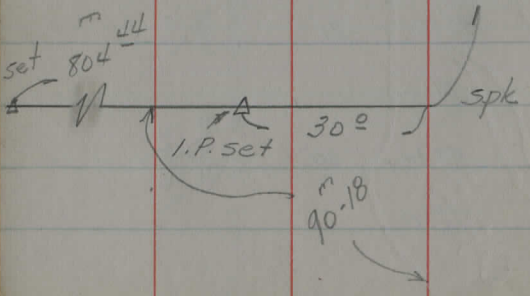 set
m
804 44
spk
I.P. set
30 º
m
90.18